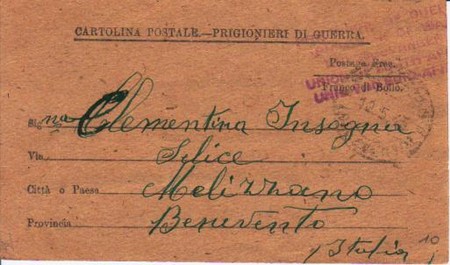 CARTOLINA POSTALE.—PRIGIONIERI DI GUERRA.
Postage Free.
Franco di Bollo.
Sig.na Clementina Insogna
Via Selice
Città o Paese Melizzano
Provincia Benevento
Italia
10